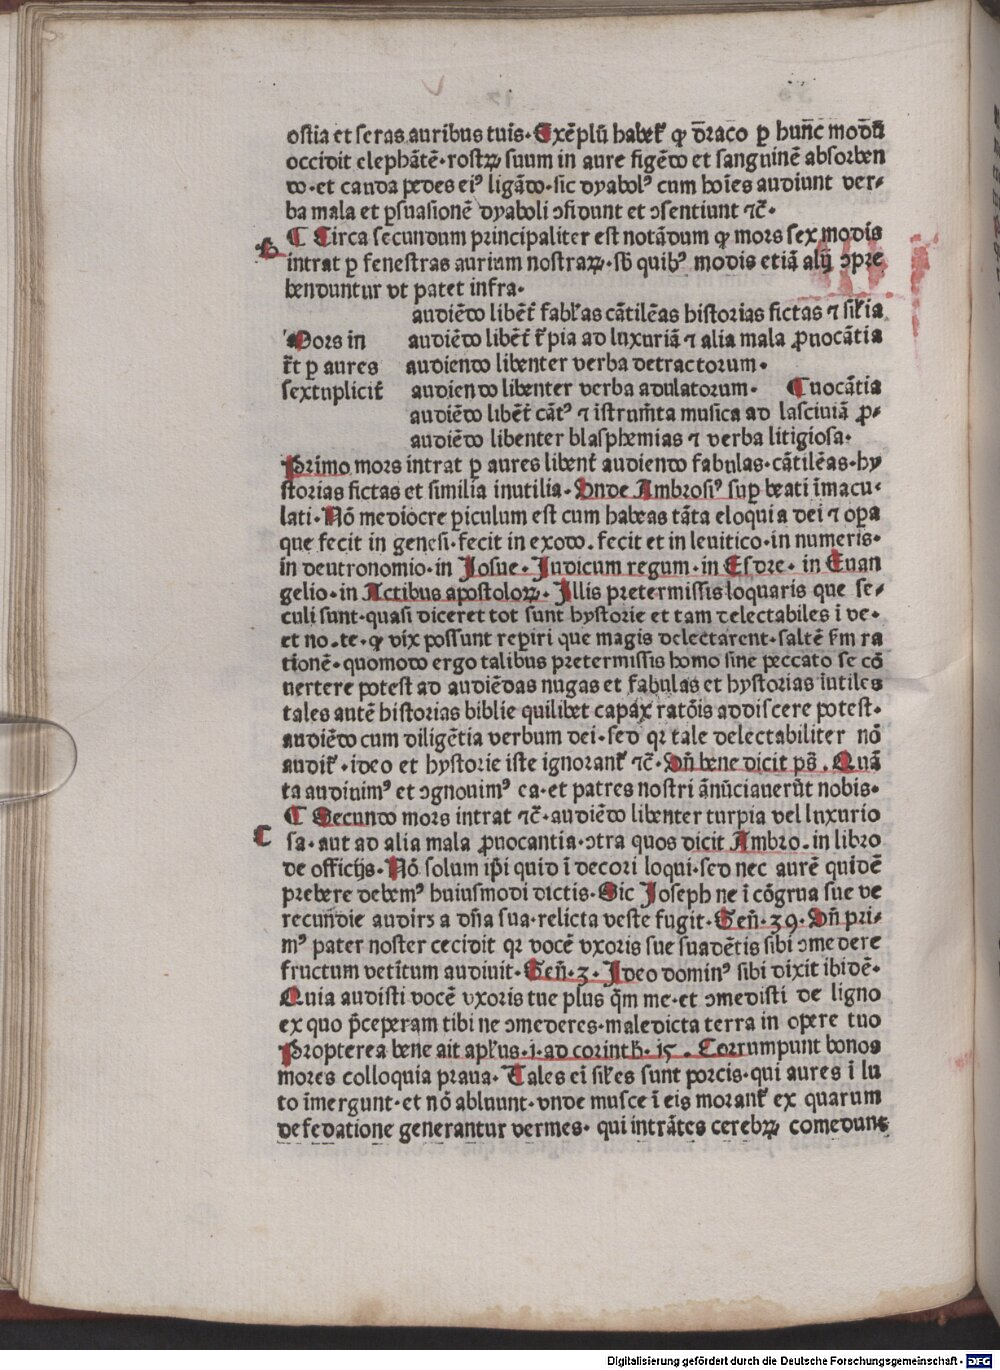 ostia et seras auribus tuis. Exēplū habetʳ ꝙ draco ꝑ hunc modū
occidit elephātē. rostꝝ suum in aure figēdo et sanguinē absorben
do. et cauda pedes eiꝰ ligādo. sic dyabolꝰ cum hoīes audiunt ver-
ba mala et ꝑsuasionē dyaboli ↄfidunt et ↄsentiunt ⁊c̄.
B
¶ Circa secundum principaliter est notādum ꝙ mors sex modis
intrat ꝑ fenestras aurium nostraꝝ. sb̄ quibꝰ modis etiā alij ↄpre
henduntur vt patet infra.
audiēdo libēt̄ fabl̓as cātilēas historias fictas ⁊ sil̓ia
Mors in audiēdo libēt̄ t̄pia ad luxuriā ⁊ alia mala ꝓuocātia
tr̄t ꝑ aures audiendo libenter verba detractorum.
sextuplicit̄ audiendo libenter verba adulatorum. ¶ uocātia
audiēdo libēt̄ cātꝰ ⁊ īstrum̄ta musica ad lasciuiā ꝓ-
audiēdo libenter blasphemias ⁊ verba litigiosa.
Primo mors intrat ꝑ aures libent̄ audiendo fabulas. cātilēas. hy
storias fictas et similia inutilia. Vnde Ambrosiꝰ suꝑ beati īmacu-
lati. Nō mediocre ꝑiculum est cum habeas tāta eloquia dei ⁊ oꝑa
que fecit in genesi. fecit in exodo. fecit et in leuitico. in numeris.
in deutronomio. in Josue. Judicum regum. in Esdre. in Euan
gelio. in Actibus apostoloꝝ. Illis pretermissis loquaris que se-
culi sunt. quasi diceret tot sunt hystorie et tam delectabiles ī ve.
et no. te. ꝙ vix possunt reꝑiri que magis delectarent. saltē ẜm ra
tionē. quomodo ergo talibus pretermissis homo sine peccato se cō
uertere potest ad audiēdas nugas et fabulas et hystorias īutiles
tales autē historias biblie quilibet capax ratōis addiscere potest.
audiēdo cum diligētia verbum dei. sed qr tale delectabiliter nō
auditʳ. ideo et hystorie iste ignorantʳ ⁊c̄. Vn̄ bene dicit ps̄. Quā
ta audiuimꝰ et ↄgnouimꝰ ea. et patres nostri ānūciauerūt nobis.
¶ Secundo mors intrat ⁊c̄. audiēdo libenter turpia vel luxurio
C
sa. aut ad alia mala ꝓuocantia. ↄtra quos dicit Ambro. in libro
de officijs. Nō solum ip̄i quid ī decori loqui. sed nec aurē quidē
prebere debemꝰ huiusmodi dictis. Sic Joseph ne ī cōgrua sue ve
recundie audirꝫ a dn̄a sua. relicta veste fugit. Gen̄. 39. Vn̄ pri-
mꝰ pater noster cecidit qr vocē vxoris sue suadētis sibi ↄmedere
fructum vetitum audiuit. Gen̄. 3. Ideo dominꝰ sibi dixit ibidē.
Quia audisti vocē vxoris tue plus q̄m me. et ↄmedisti de ligno
ex quo p̄ceperam tibi ne ↄmederes. maledicta terra in opere tuo
Propterea bene ait apl̓us. i. ad corinth. 15. Corrumpunt bonos
mores colloquia praua. Tales eī sil̓es sunt porcis. qui aures ī lu
to īmergunt. et nō abluunt. vnde musce ī eis morantʳ ex quarum
defedatione generantur vermes. qui intrātes cerebꝝ comedunt
Digitalisierung gefördert durch die Deutsche Forschungsgemeinschaft - DFG